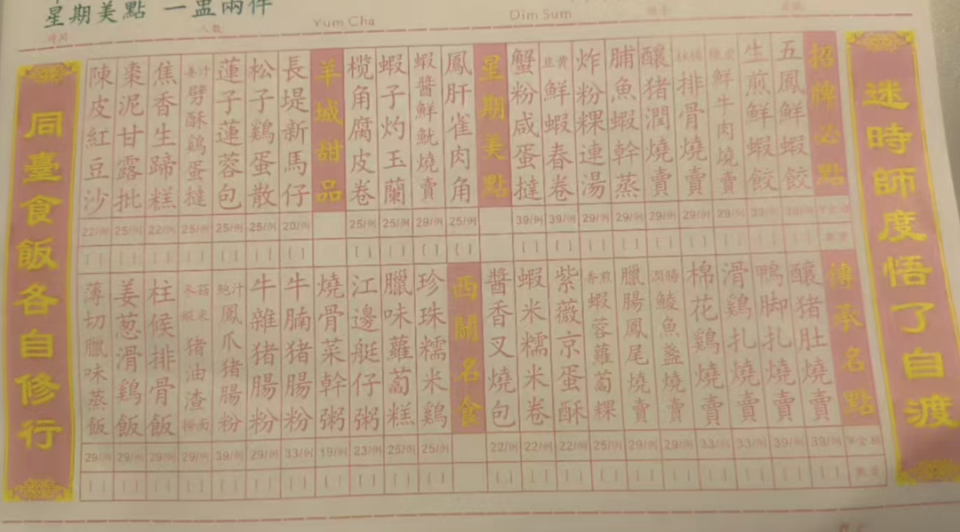 星期美點 一盅兩件
Yum Cha
Dim Sum
人數
迷時師度悟了自渡
招牌必點
五鳳鮮蝦餃
生煎鮮蝦餃
鮮牛肉燒賣
排骨燒賣
釀猪潤燒賣 29/例
脯魚蝦幹蒸 29/例
炸粉粿連湯 29/例
鮮蝦春卷 39/例
蟹粉咸蛋撻 39/例
星期美點
鳳肝雀肉角 25/例
蝦醬鮮魷燒賣 29/例
蝦子灼玉蘭 25/例
欖角腐皮卷 25/例
羊城甜品
長堤新馬仔 20/例
松子鷄蛋散 25/例
蓮子蓮蓉包 25/例
姜汁擘酥鷄蛋撻 25/例
焦香生蹄糕 22/例
棗泥甘露批 25/例
陳皮紅豆沙 22/例
傳承名點
釀猪肚燒賣
鴨脚扎燒賣
滑鷄扎燒賣 33/例
棉花鷄燒賣 33/例
鯪魚盞燒賣 29/例
臘腸鳳尾燒賣 29/例
香煎蝦蓉蘿蔔粿 25/例
紫薇京蛋酥 22/例
蝦米糯米卷 22/例
醬香叉燒包 22/例
西關名食
珍珠糯米鷄 25/例
臘味蘿蔔糕 25/例
江邊艇仔粥 23/例
燒骨菜幹粥 19/例
牛腩猪腸粉 33/例
牛雜猪腸粉 29/例
鮑汁鳳爪猪腸粉 39/例
猪油渣 29/例
柱候排骨飯 29/例
姜葱滑鷄飯 29/例
薄切臘味蒸飯 29/例
同臺食飯各自修行